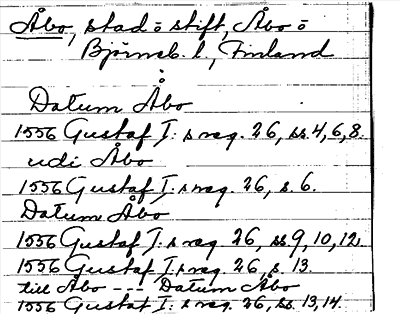 Åbo, stad o stift, Åbo o
Björneb. l., Finland
Datum Åbo
1556 Gustaf I: s reg. 26, ss 4, 6, 8.
udi Åbo
1556 Gustaf I: s reg. 26, s. 6.
Datum Åbo
1556 Gustaf I: s reg. 26, ss 9, 10, 12,
1556 Gustaf I: s reg. 26, s. 13.
till Åbo --- Datum Åbo
1556 Gustaf I: s reg. 26, ss. 13, 14.